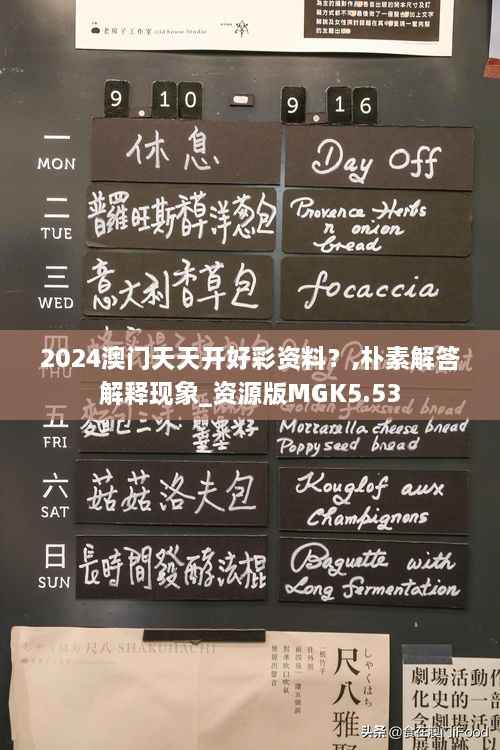 老房子工作室 Old House Studio
9 10 - 9 16
一 MON 休息 Day Off
二 TUE 普羅旺斯香草洋蔥包 Provence Herbs
n onion
bread
三 WED 意大利香草包 focaccia
四
2024澳门天天开好彩资料？,朴素解答
解释现象_资源版MGK5.53
五 FRI
Mozzarella cheese bread
Poppyseed bread
六 SAT 菇菇洛夫包 Kouglof aux
Champignons
日 SUN 長時間發酵法棍 Baguette with
Long fermentation
尺八 SHAKUHACHI
しゃくはち
尺八雅
劇場活動作
化史的一部
头条 @食在澳门IFood